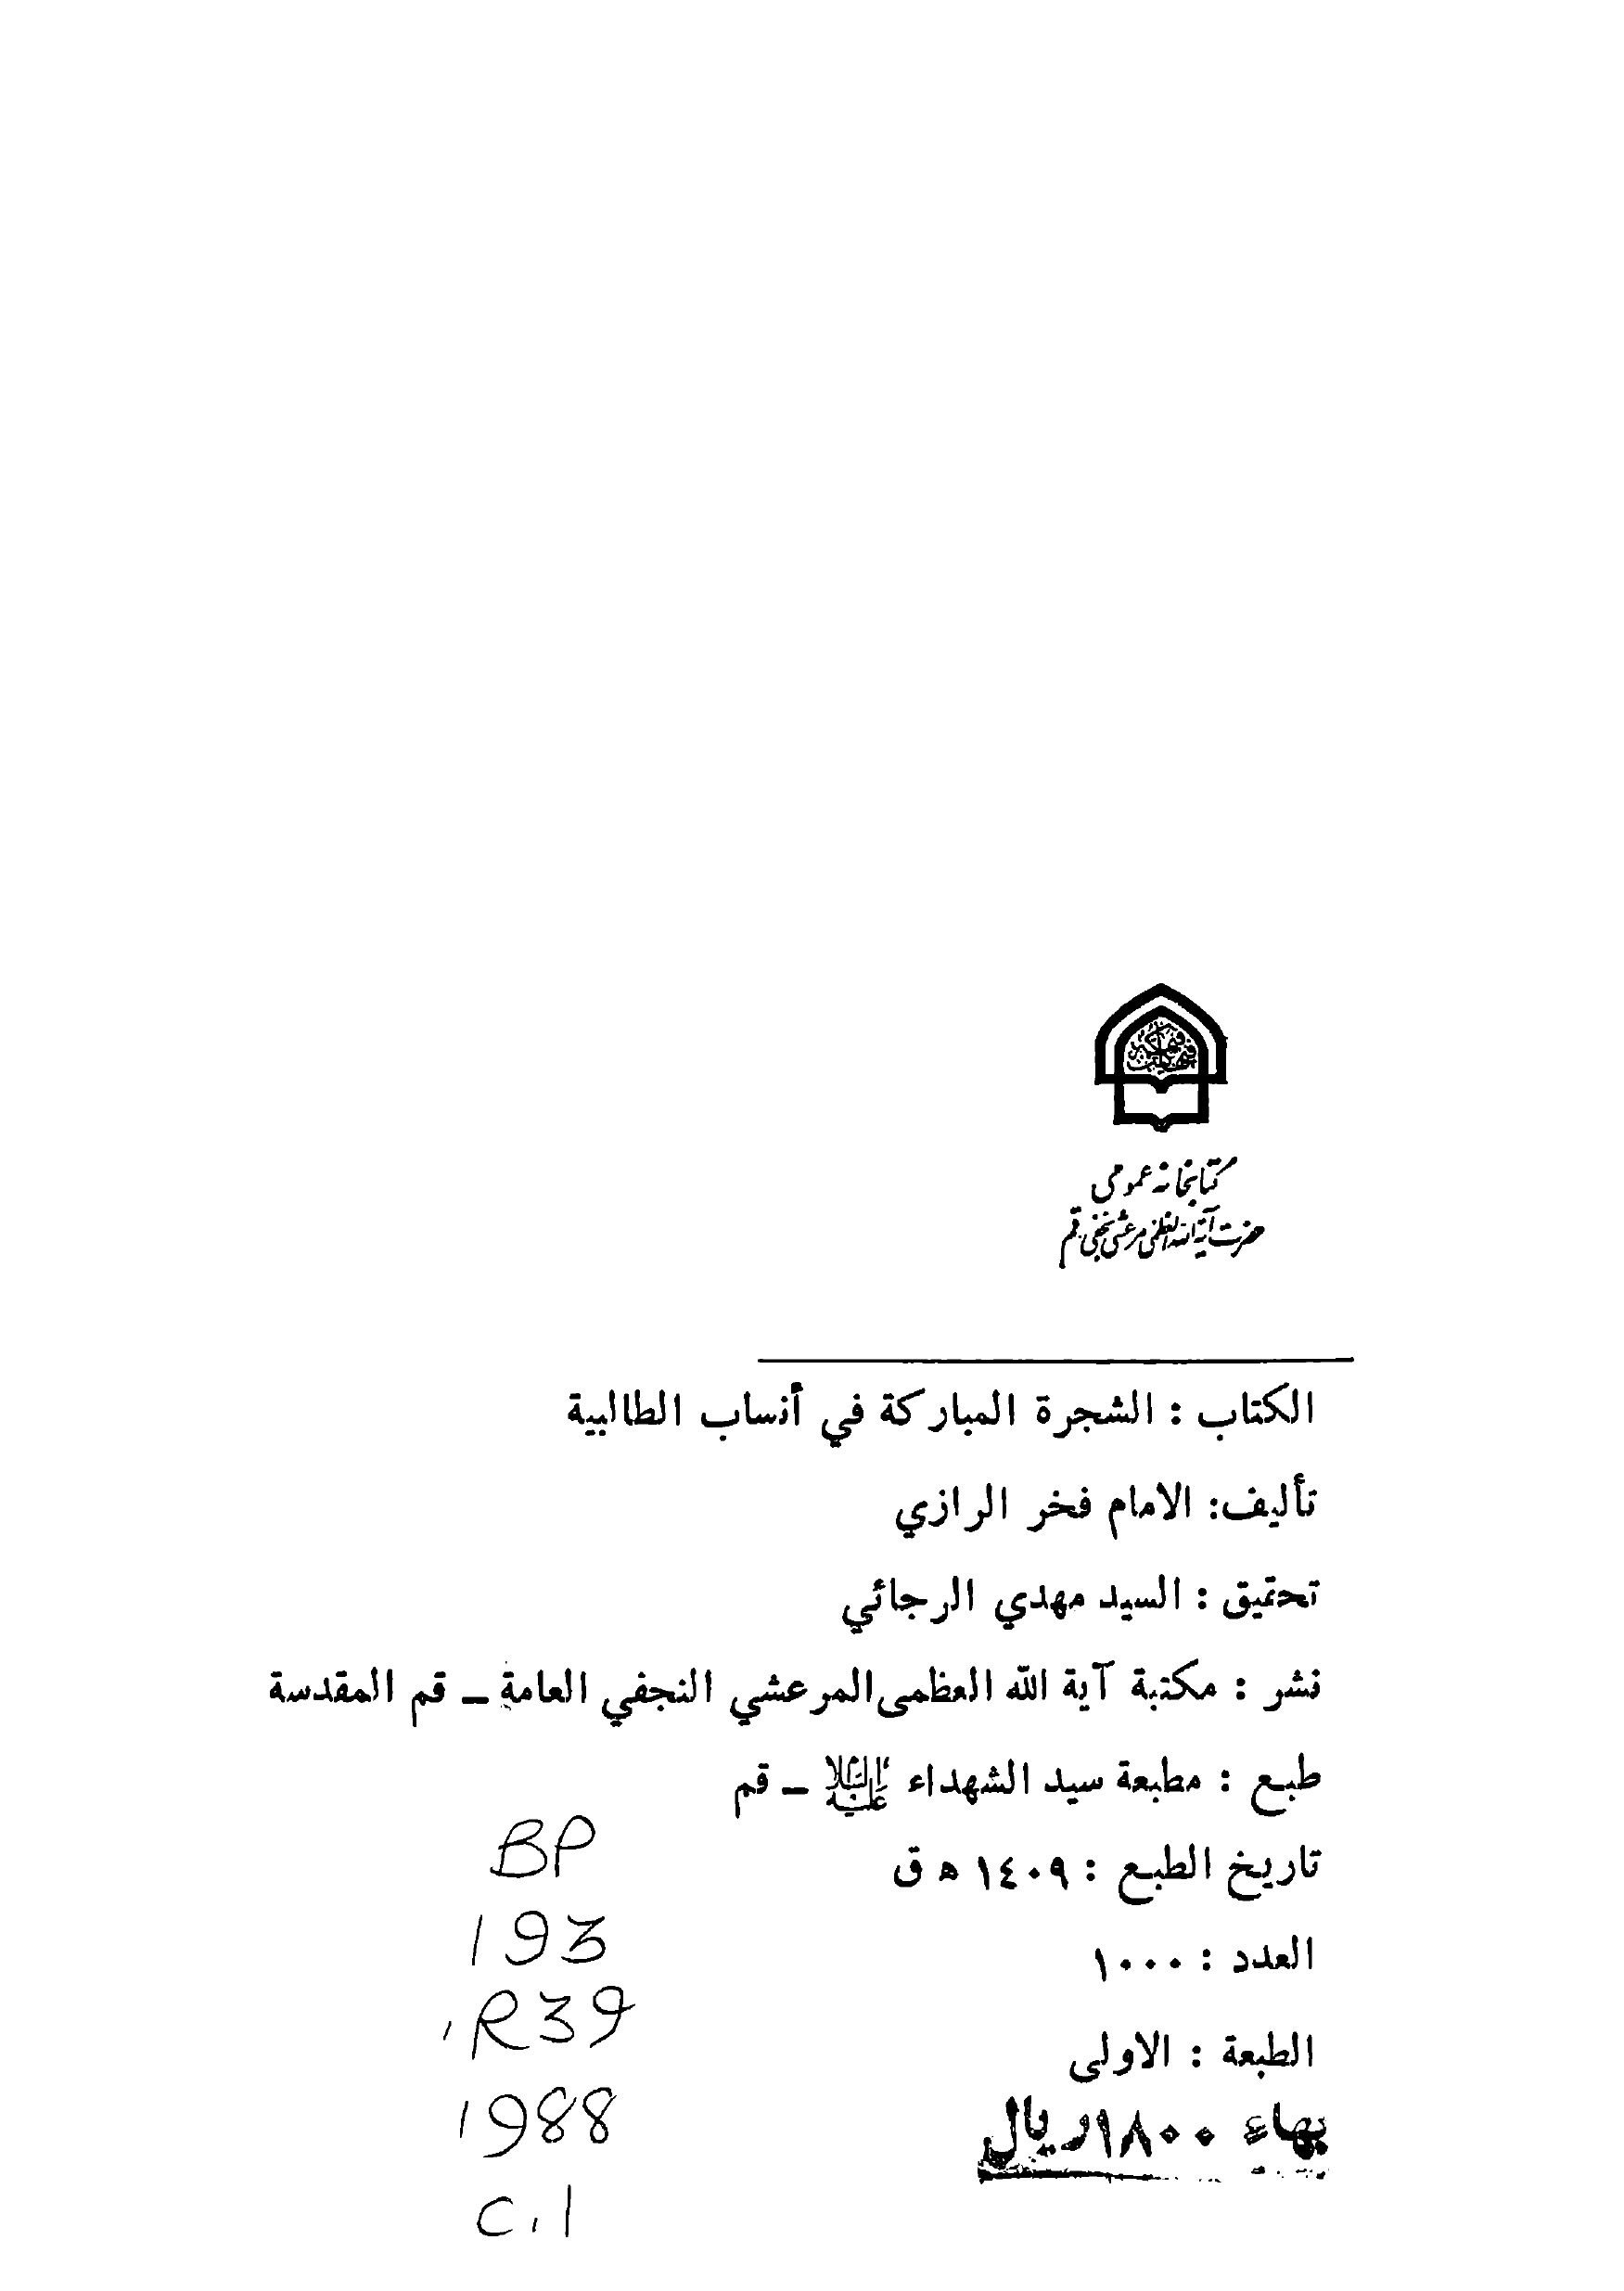 كتابخانه عمومى
حضرت آية الله العظمى مرعشى نجفى . قم
الكتاب : الشجرة المباركة في أنساب الطالبية
تأليف: الامام فخر الرازي
تحقيق : السيد مهدي الرجائي
نشر : مكتبة آية الله العظمى المرعشي النجفي العامة ــ قم المقدسة
طبع : مطبعة سيد الشهداء عليه السلام ــ قم
تاريخ الطبع : ١٤٠٩ ه ق
العدد : ١٠٠٠
الطبعة : الاولى
بهاء ١٨٠٠ ريال
BP
193
.R39
1988
C.1